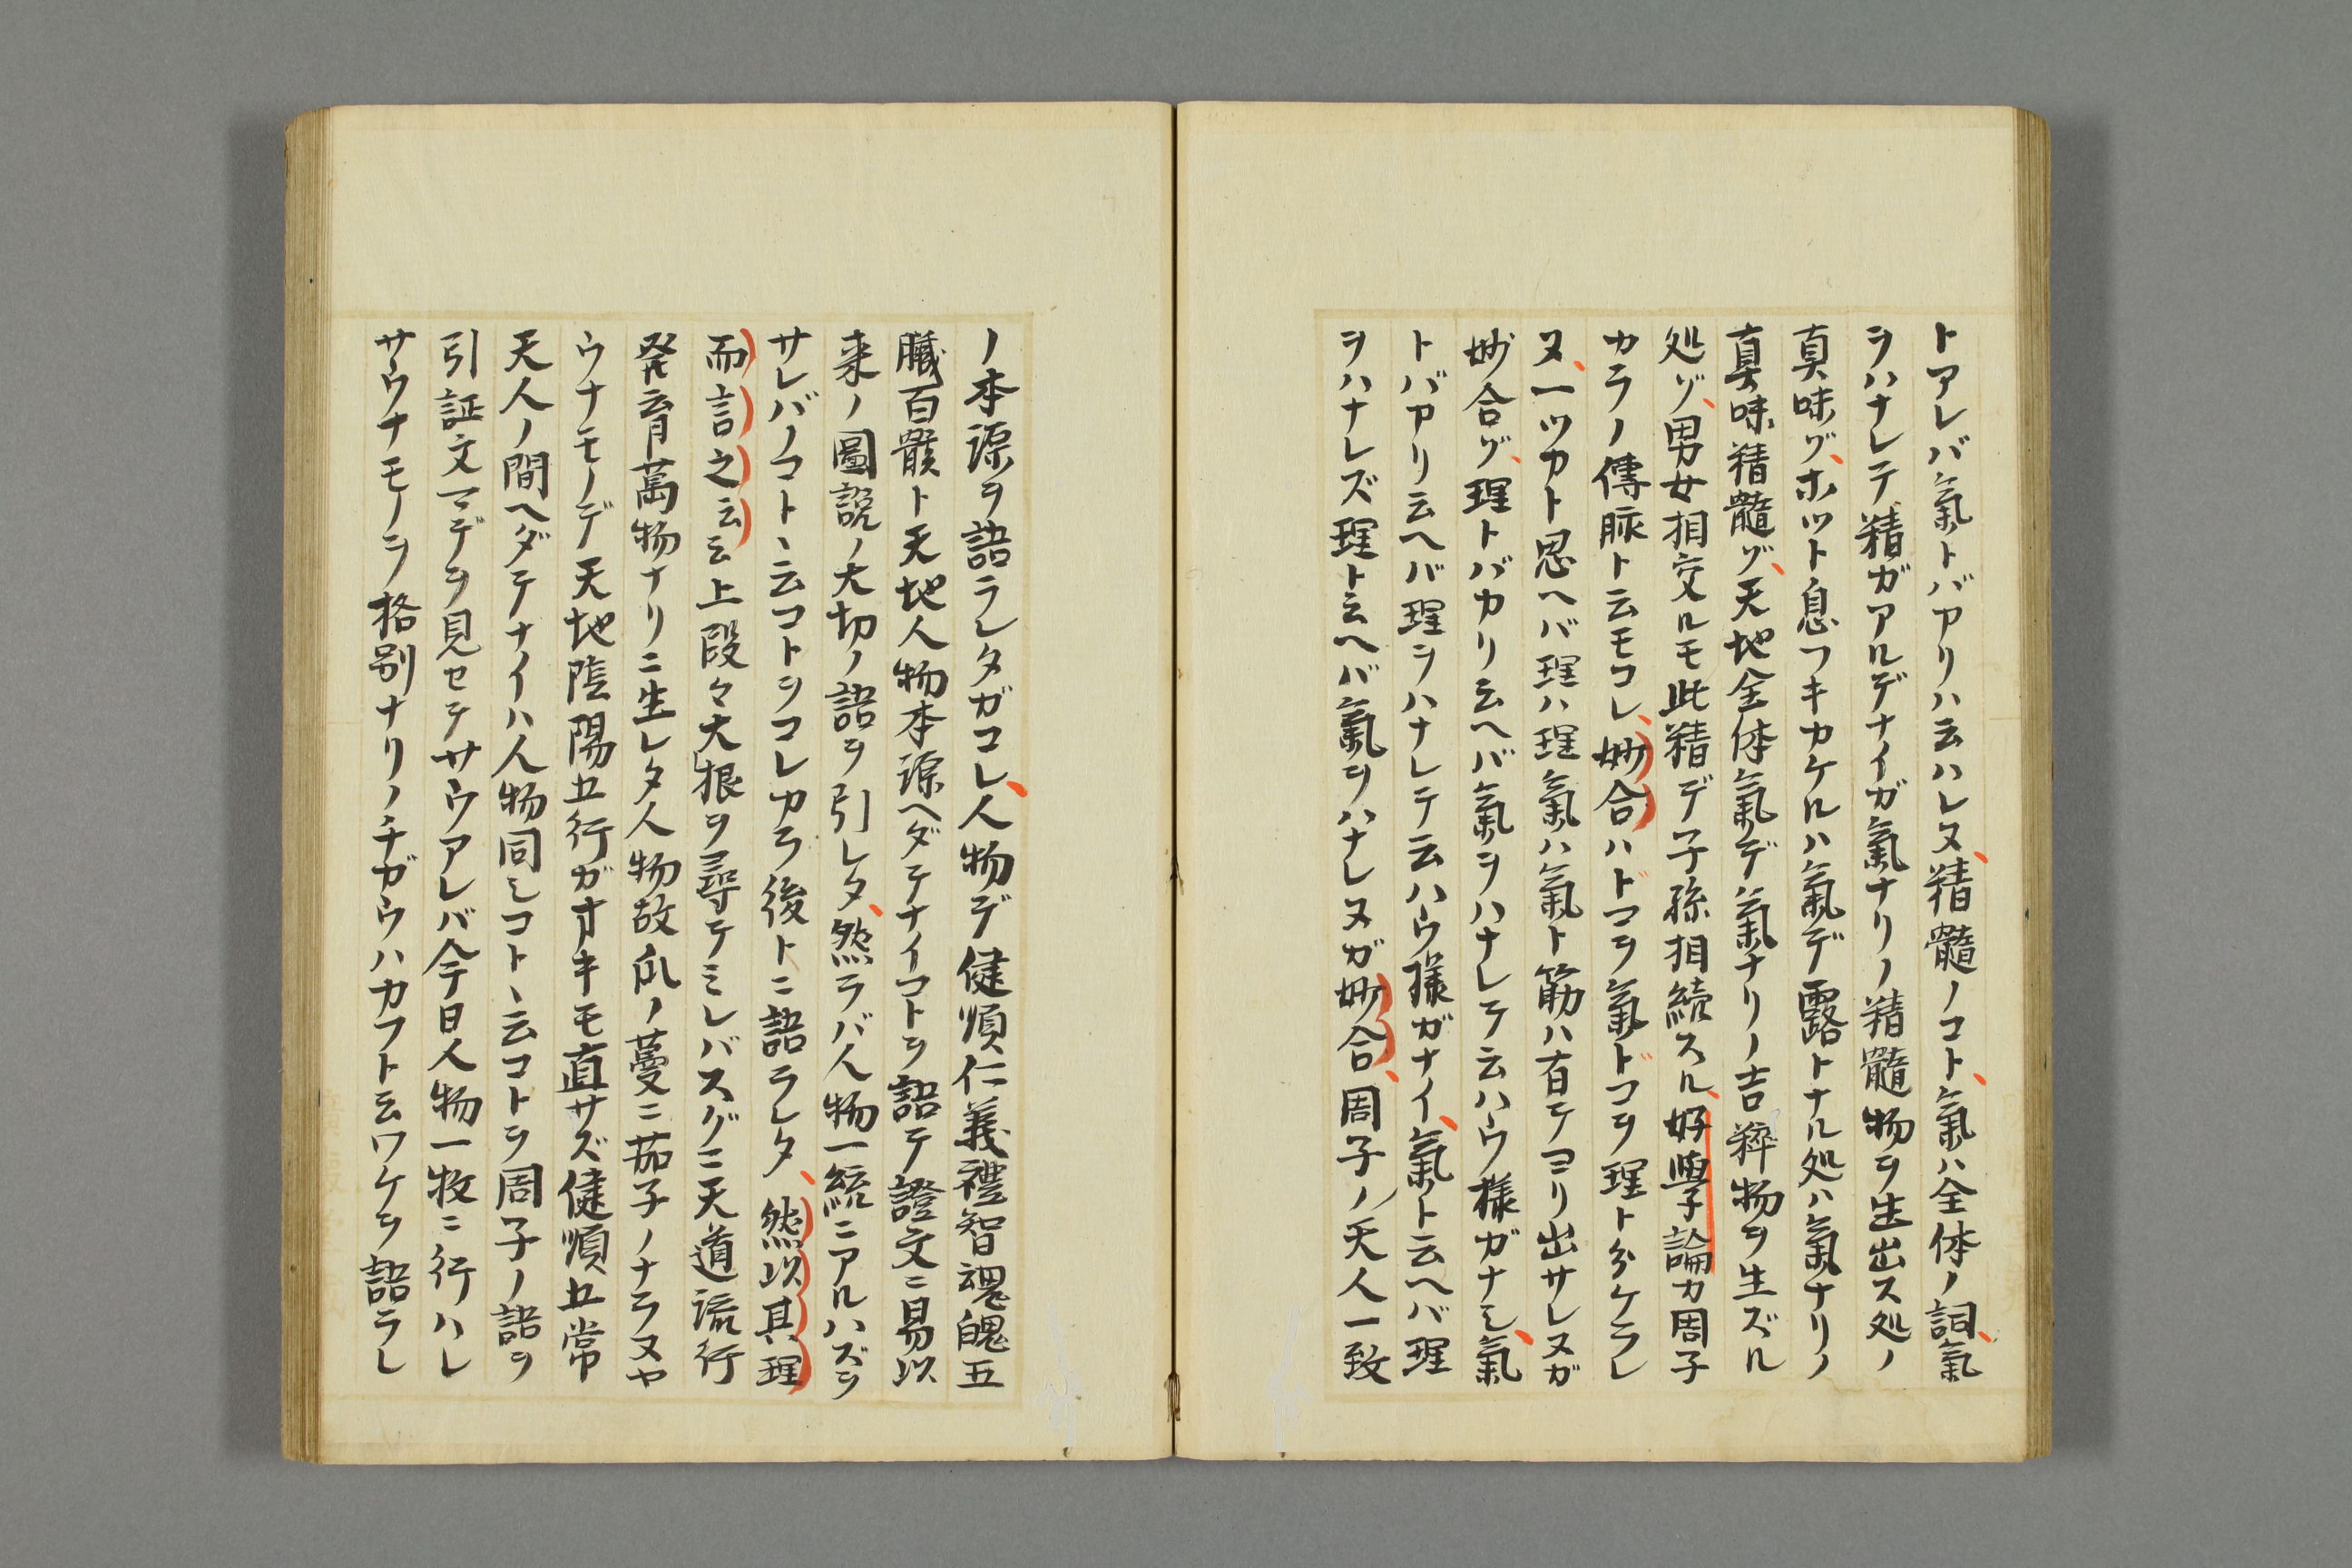 トアレバ氣トバカリハ云ハレヌ、精髓ノコト、氣ハ全体ノ詞、氣
ヲハナレテ精ガアルデナイガ氣ナリノ精髓物ヲ生出ス処ノ
真味ゾ、ホット息フキカケルハ氣デ露トナル処ハ氣ナリノ
真味精髓ゾ、天地全体氣デ氣ナリノ吉粹物ヲ生ズル
処ゾ、男女相交ルモ此精デ子孫相続スル、好學論カ周子
カラノ傳脉ト云モコレ、妙合ハドコヲ氣ドコヲ理ト分ケラレ
ヌ、一ツカト思ヘバ理ハ理氣ハ氣ト筋ハ有テヨリ出サレヌガ
妙合ゾ、理トバカリ云ヘバ氣ヲハナレテ云ハウ様ガナシ、氣
トバカリ云ヘバ理ヲハナレテ云ハウ様ガナイ、氣ト云ヘバ理
ヲハナレズ理ト云ヘバ氣ヲハナレヌガ妙合、周子ノ天人一致
ノ本源ヲ語ラレタガコレ、人物デ健順仁義禮智魂魄五
臓百骸ト天地人物本源ヘダテナイコトヲ語テ證文ニ易以
来ノ圖説ノ大切ノ語ヲ引レタ、然ラバ人物一統ニアルハズヲ
サレバノコトヽ云コトヲコレカラ後トニ語ラレタ、然以其理
而言之云云上段々大根ヲ尋テミレバスグニ天道流行
発育萬物ナリニ生レタ人物故瓜ノ蔓ニ茄子ノナラヌヤ
ウナモノデ天地陰陽五行ガオキモ直サズ健順五常
天人ノ間ヘダテナイハ人物同シコトヽ云コトヲ周子ノ語ヲ
引証文マデヲ見セテサウアレバ今日人物一牧ニ行ハレ
サウナモノヲ格別ナリノチガウハカフト云ワケヲ語ラレ